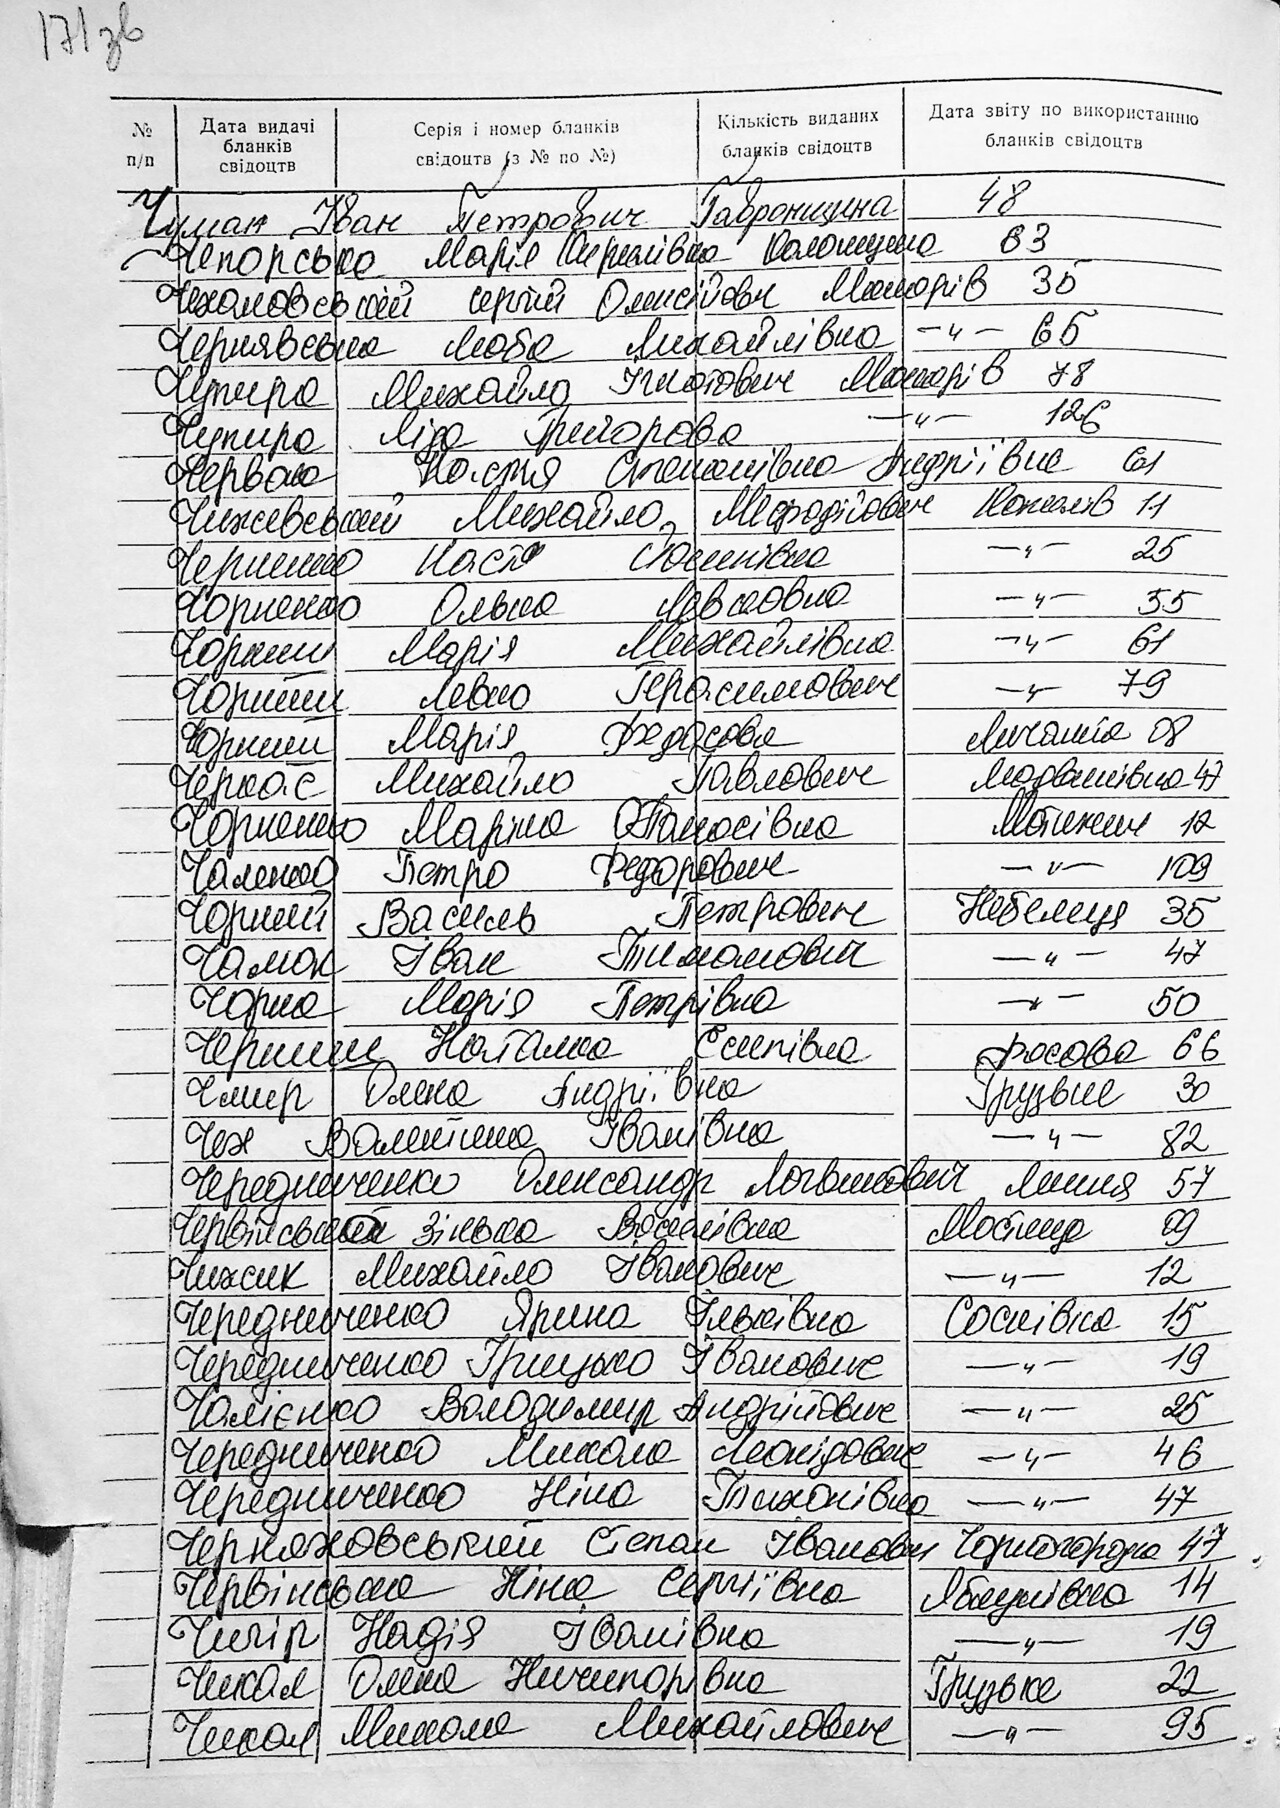 171 зв
№ п/п
Дата видачі бланків свідоцтв
Серія і номер бланків свідоцтв (з № по №)
Кількість виданих бланків свідоцтв
Дата звіту по використанню бланків свідоцтв
Чумак Іван Петрович Гавронщина 48
Чепорська Марія Кирилівна Колонщина 63
Чехановський Сергій Олексійович Макарів 35
Чернявська Люба Михайлівна —"— 65
Чупира Михайло Ігнатович Макарів 78
Чупира Ліда Григорова —"— 126
Червона Настя Степанівна Андріївка 61
Чижевський Михайло Мефодійович Копилів 11
Черненко Настя —"— 25
Чорненко Ольга Левковна —"— 55
Чорний Марія Михайлівна —"— 61
Чорний Левко Герасимович —"— 79
Чорний Марія Федосова Личанка 08
Черкас Михайло Павлович 47
Чорненко Марина Опанасівна Мотижин 12
Чаленко Петро Федорович —"— 109
Чорний Василь Петрович Небелиця 35
Чамок Іван Тимонович —"— 47
Чорна Марія Петрівна —"— 50
Черниш Наталка Єсипівна Фасова 66
Чмир Олена Андріївна Грузьке 30
Чех Валентина Іванівна —"— 82
Чередниченко Олександр Логвинович Липня 57
Червінський Зінька Василівна Мостище 09
Чижик Михайло Іванович —"— 12
Чередниченко Ярина Ільківна Соснівка 15
Чередниченко Грицько Іванович —"— 19
Чалієнко Володимир Андрійович —"— 25
Чередниченко Микола Леонідович —"— 46
Чередниченко Ніна Тихонівна —"— 47
Черняховський Степан Іванович Чорногородка 47
Червінська Ніна Сергіївна Яблунівка 14
Чигір Надія Іванівна —"— 19
Чикал Олена Ничипорівна Грузька 22
Чикал Микола Михайлович —"— 95